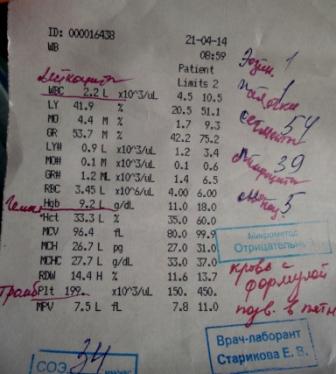 ID: 000016438 21-04-14
WB 08:59
Лейкоциты Patient
Limits 2
WBC 2.2 L x10^3/uL 4.5 10.5
LY 41.9 % 20.5 51.1
MO 4.4 M % 1.7 9.3
GR 53.7 % 42.2 75.2
LY# 0.9 L x10^3/uL 1.2 3.4
MO# 0.1 M x10^3/uL 0.1 0.6
GR# 1.2 ML x10^3/uL 1.4 6.5
RBC 3.45 L x10^6/uL 4.00 6.00
Hgb 9.2 L g/dL 11.0 18.0
*Hct 33.3 L % 35.0 60.0
MCV 96.4 fL 80.0 99.9
MCH 26.7 L pg 27.0 31.0
MCHC 27.7 L g/dL 33.0 37.0
RDW 14.4 H % 11.6 13.7
Тромб Plt 199. x10^3/uL 150. 450.
MPV 7.5 L fL 7.8 11.0
Эозин. 1
палочки 1
сегменты 54
лимфоциты 39
моноц. 5
Микрометод
Отрицательн
кровь с
формулой
подв. в
Врач-лаборант
Старикова Е. В.
СОЭ 34